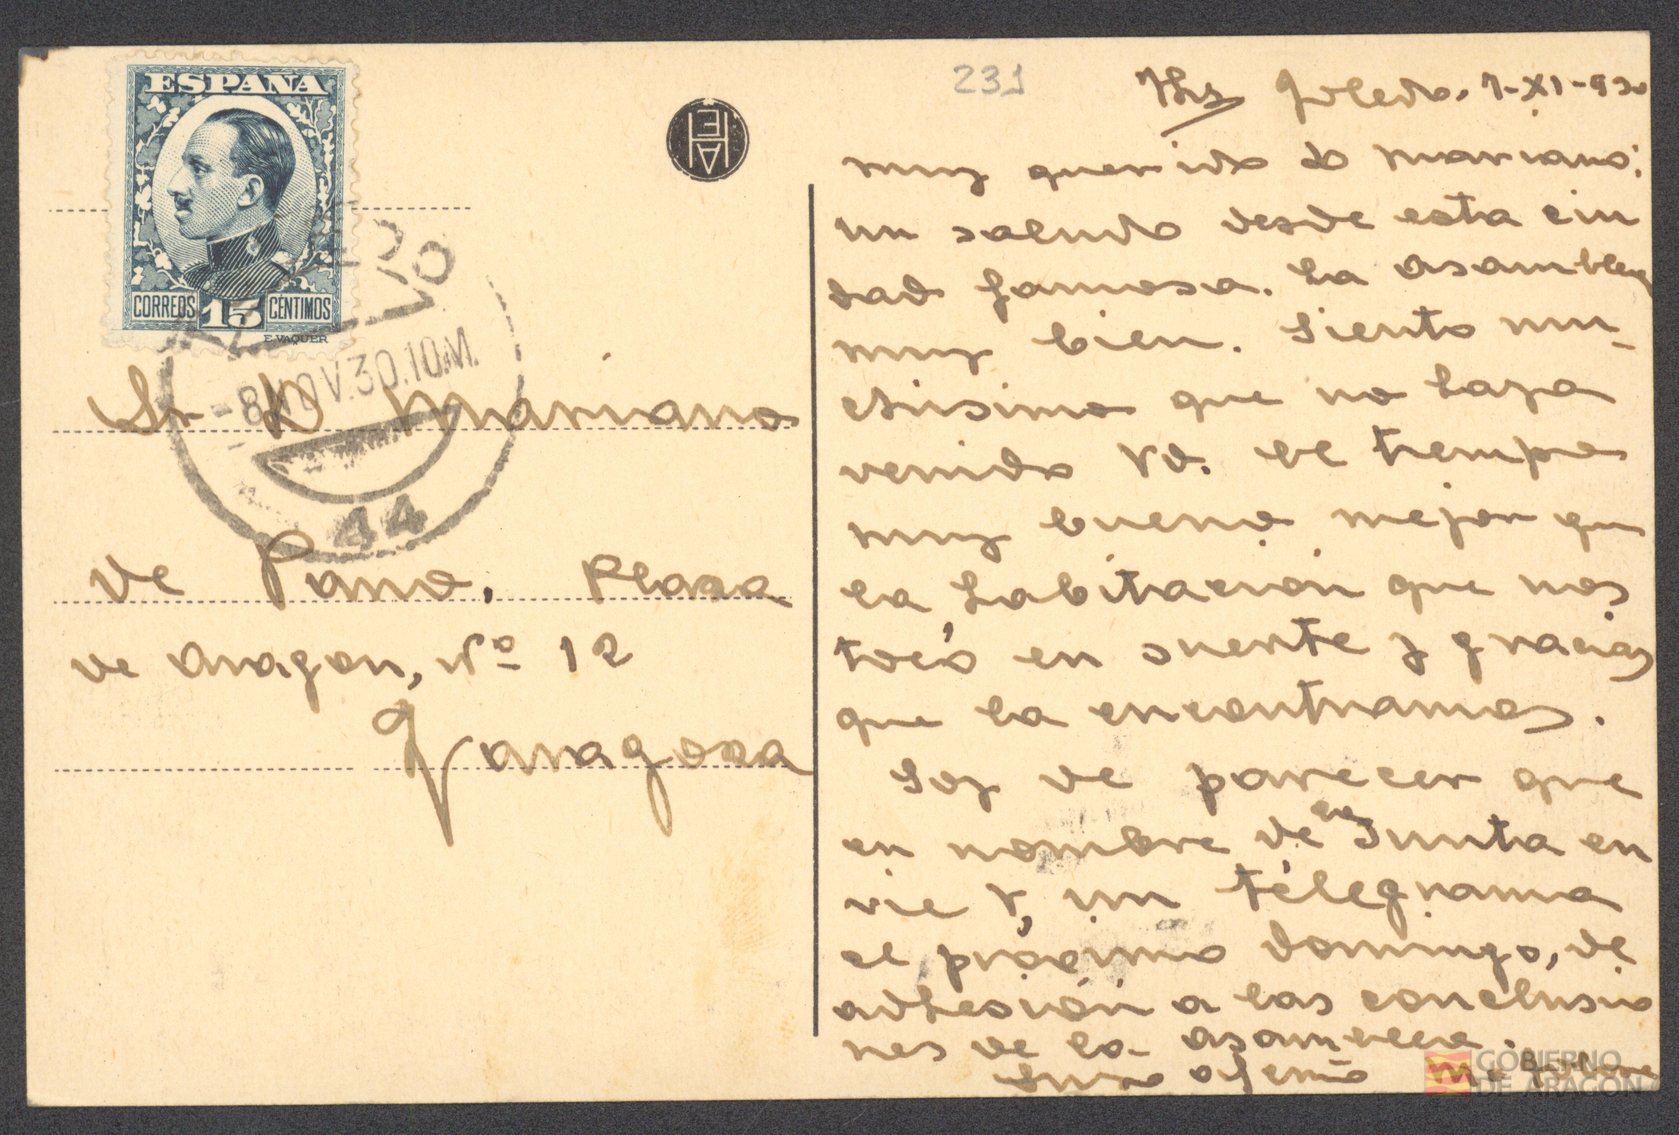 ESPAÑA
CORREOS 15 CÉNTIMOS
E. VAQUER
-8 NOV.30.10M.
44
Sr D Mariano
de Pano. Plaza
de Aragon, Nº 12
Zaragoza
231
Toledo. 7-XI-930
muy querido D Mariano:
un saludo desde esta ciu
dad famosa. La asamblea
muy bien. Siento mu-
chisimo que no haya
venido Vd. El tiempo
muy bueno mejor que
la habitación que nos
tocó en suerte y gracias
que la encontramos.
Soy de parecer que
en nombre de la Junta en
vie V, un telegrama
el próximo domingo, de
adhesión a las conclusio
nes de la asamblea.
Suyo afemo
GOBIERNO
DE ARAGON